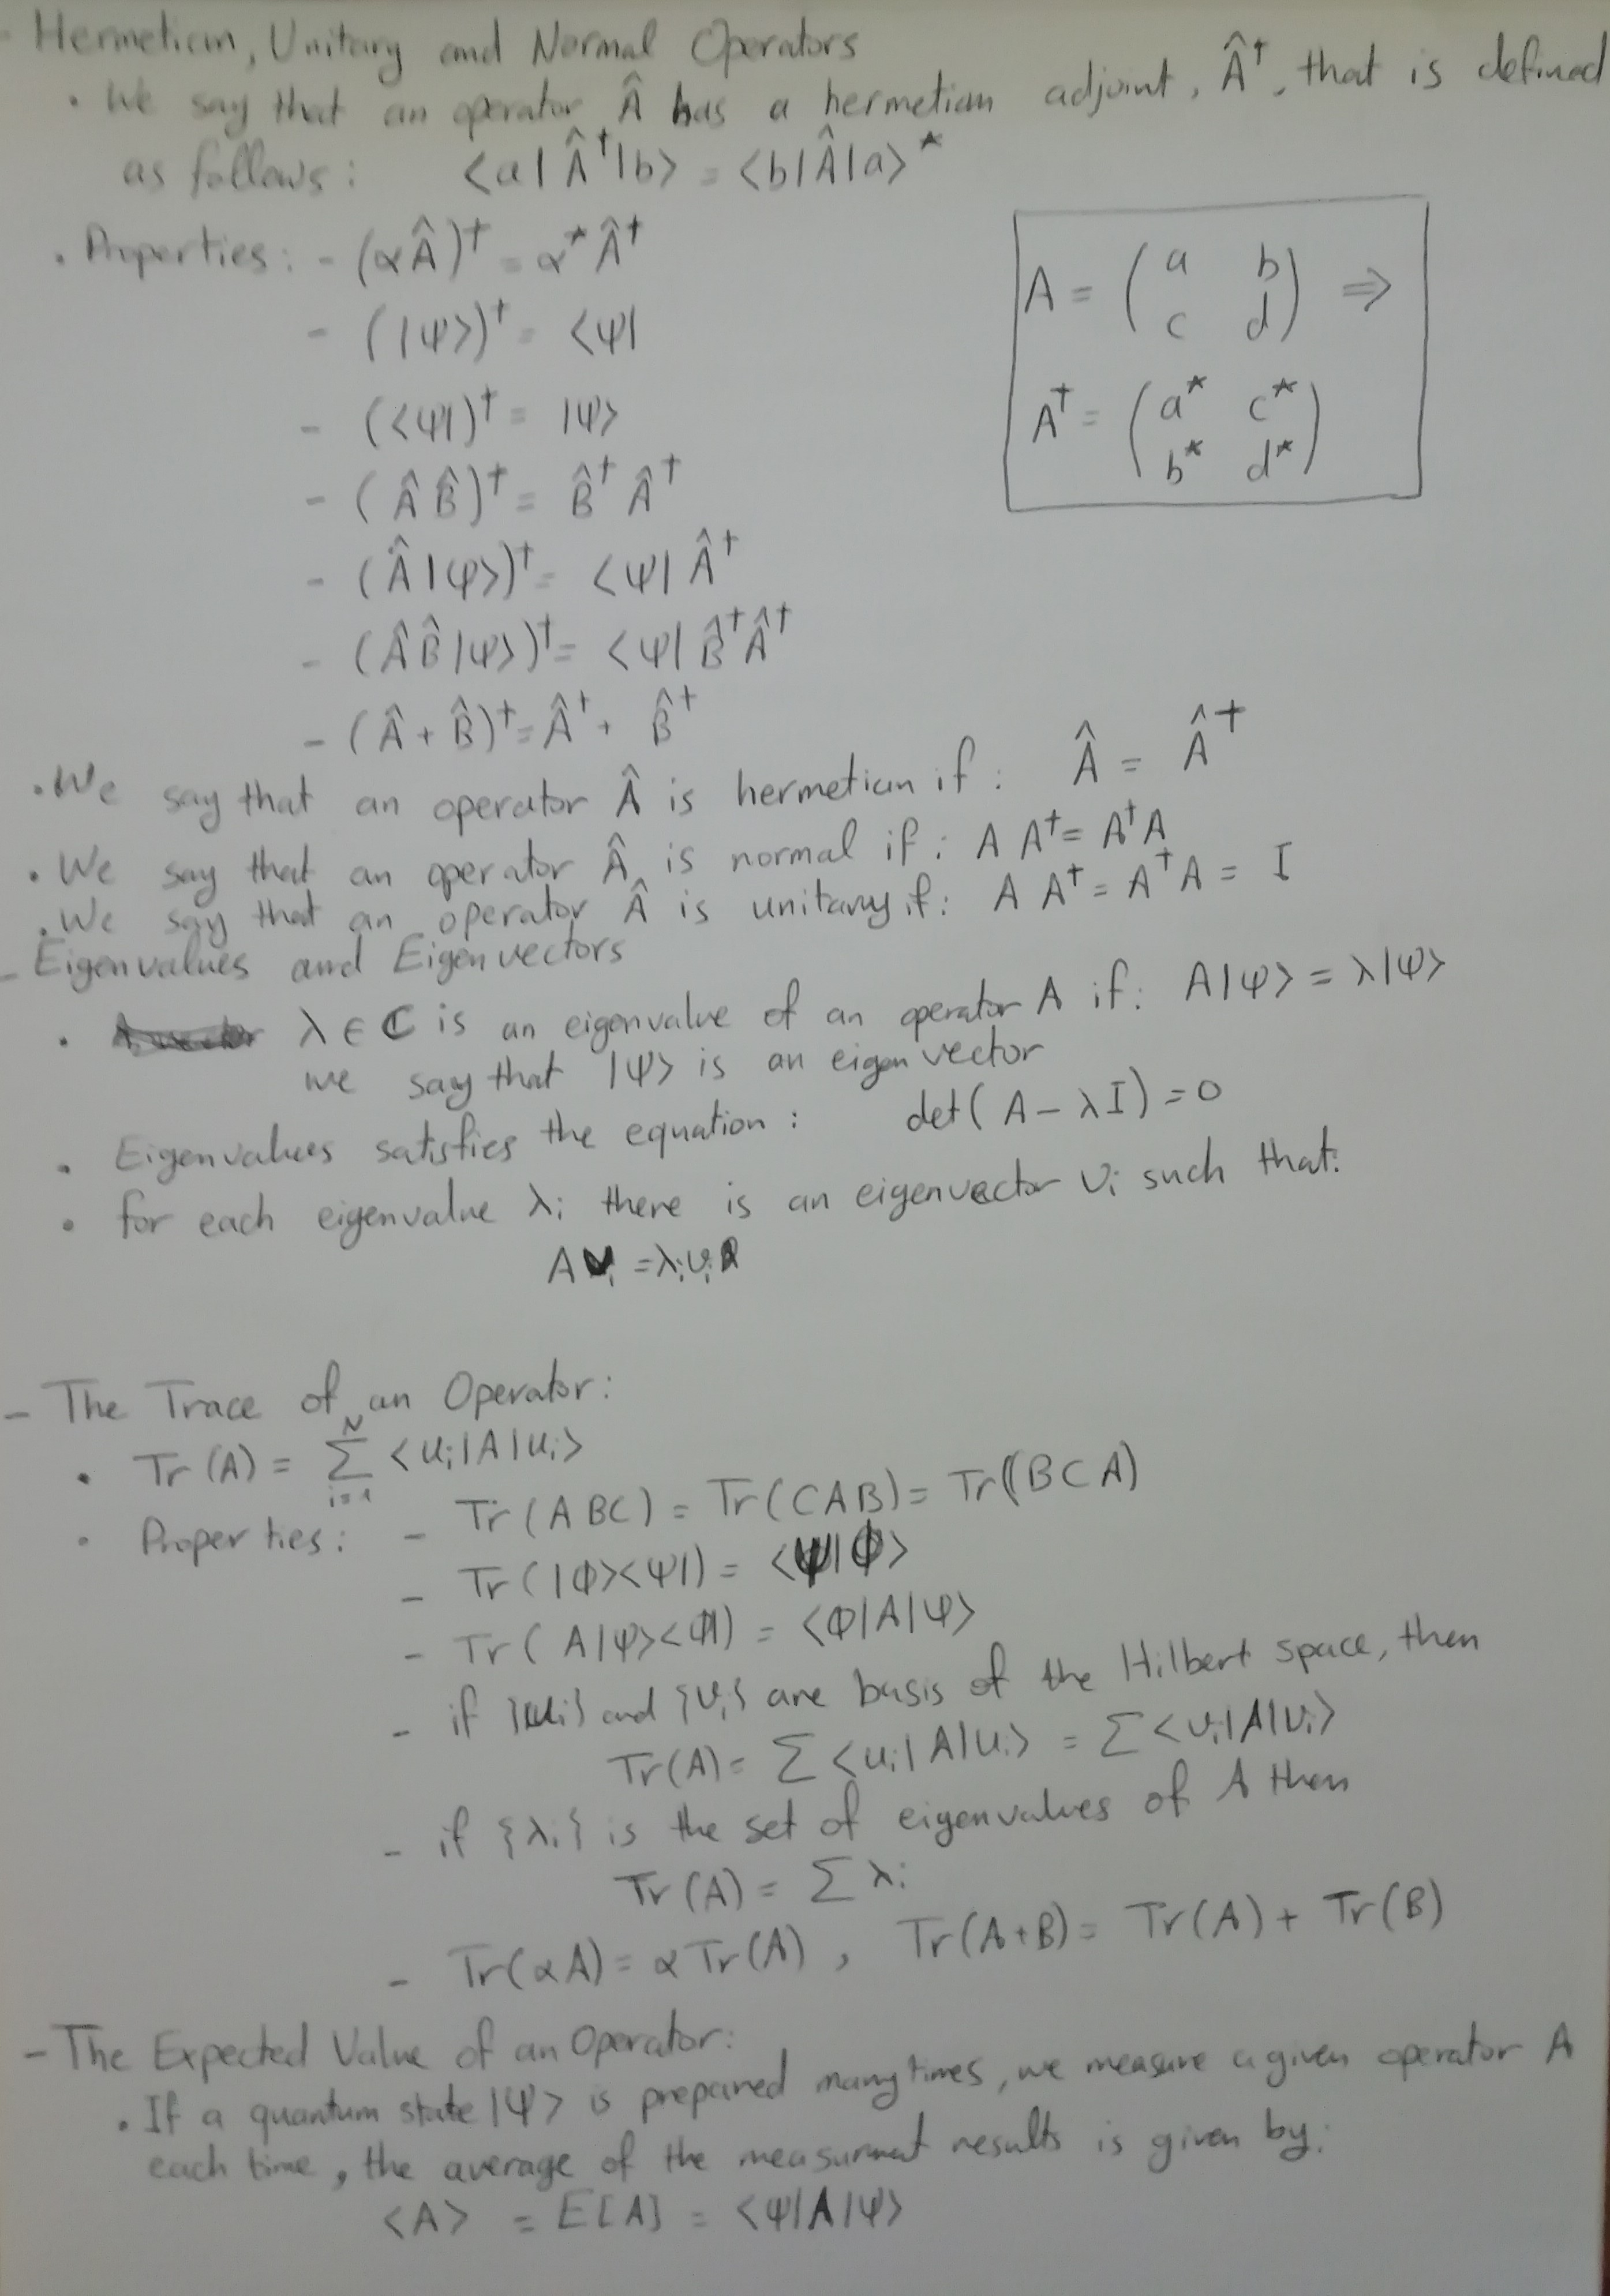 - Hermetian, Unitary and Normal Operators
• We say that an operator Â has a hermetian adjoint, Â†, that is defined
as follows: <a|Â†|b> = <b|Â|a>*
• Properties: - (αÂ)† = α*Â†
- (|ψ>)† = <ψ|
- (<ψ|)† = |ψ>
- (ÂB̂)† = B̂†Â†
- (Â|ψ>)† = <ψ|Â†
- (ÂB̂|ψ>)† = <ψ|B̂†Â†
- (Â + B̂)† = Â† + B̂†
A = (a b
c d) ⇒
A† = (a* c*
b* d*)
• We say that an operator Â is hermetian if: Â = Â†
• We say that an operator Â is normal if: A A† = A†A
• We say that an operator Â is unitary if: A A† = A†A = I
- Eigenvalues and Eigenvectors
• λ ∈ ℂ is an eigenvalue of an operator A if: A|ψ> = λ|ψ>
we say that |ψ> is an eigenvector
• Eigenvalues satisfies the equation: det(A - λI) = 0
• for each eigenvalue λi there is an eigenvector vi such that:
Avi = λivi
- The Trace of an Operator:
• Tr(A) = Σ_{i=1}^{N} <ui|A|ui>
• Properties: - Tr(ABC) = Tr(CAB) = Tr(BCA)
- Tr(|φ><ψ|) = <ψ|φ>
- Tr(A|ψ><φ|) = <φ|A|ψ>
- if {ui} and {vi} are basis of the Hilbert space, then
Tr(A) = Σ <ui|A|ui> = Σ <vi|A|vi>
- if {λi} is the set of eigenvalues of A then
Tr(A) = Σ λi
- Tr(αA) = αTr(A), Tr(A+B) = Tr(A) + Tr(B)
- The Expected Value of an Operator:
• If a quantum state |ψ> is prepared many times, we measure a given operator A
each time, the average of the measurmat results is given by:
<A> = E[A] = <ψ|A|ψ>